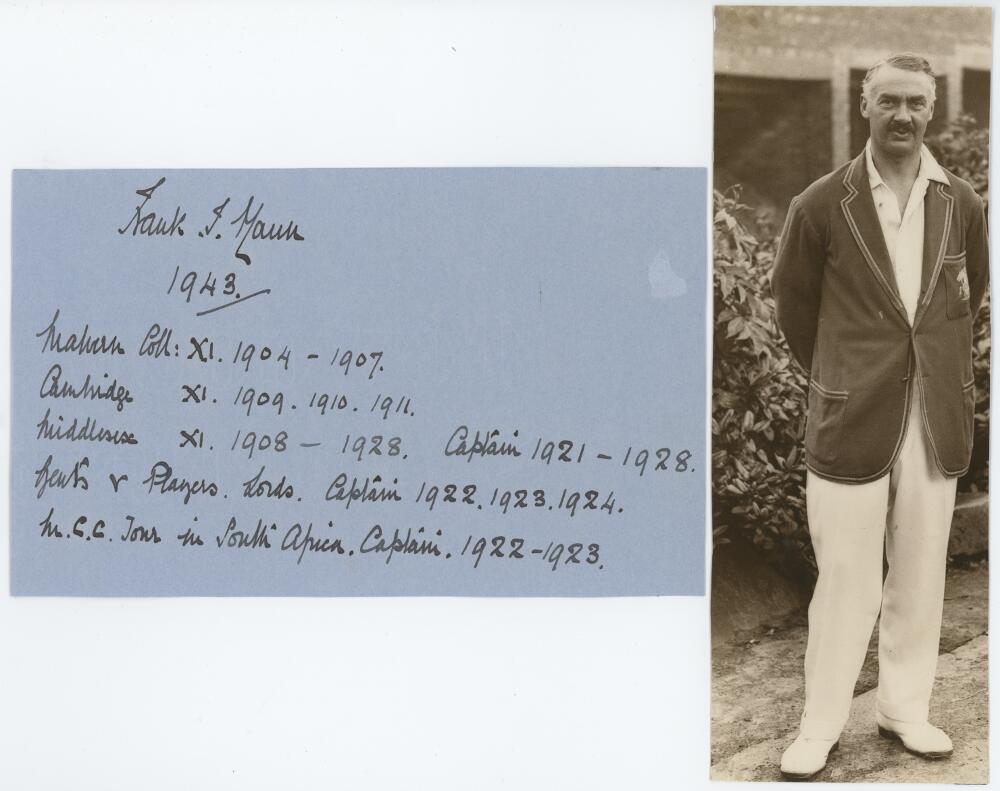 Frank T. Mann
1943.
Malvern Coll: XI. 1904 - 1907.
Cambridge XI. 1909. 1910. 1911.
Middlesex XI. 1908 - 1928. Captain 1921 - 1928.
Gents v Players. Lords. Captain 1922. 1923. 1924.
M.C.C. Tour in South Africa. Captain. 1922-1923.